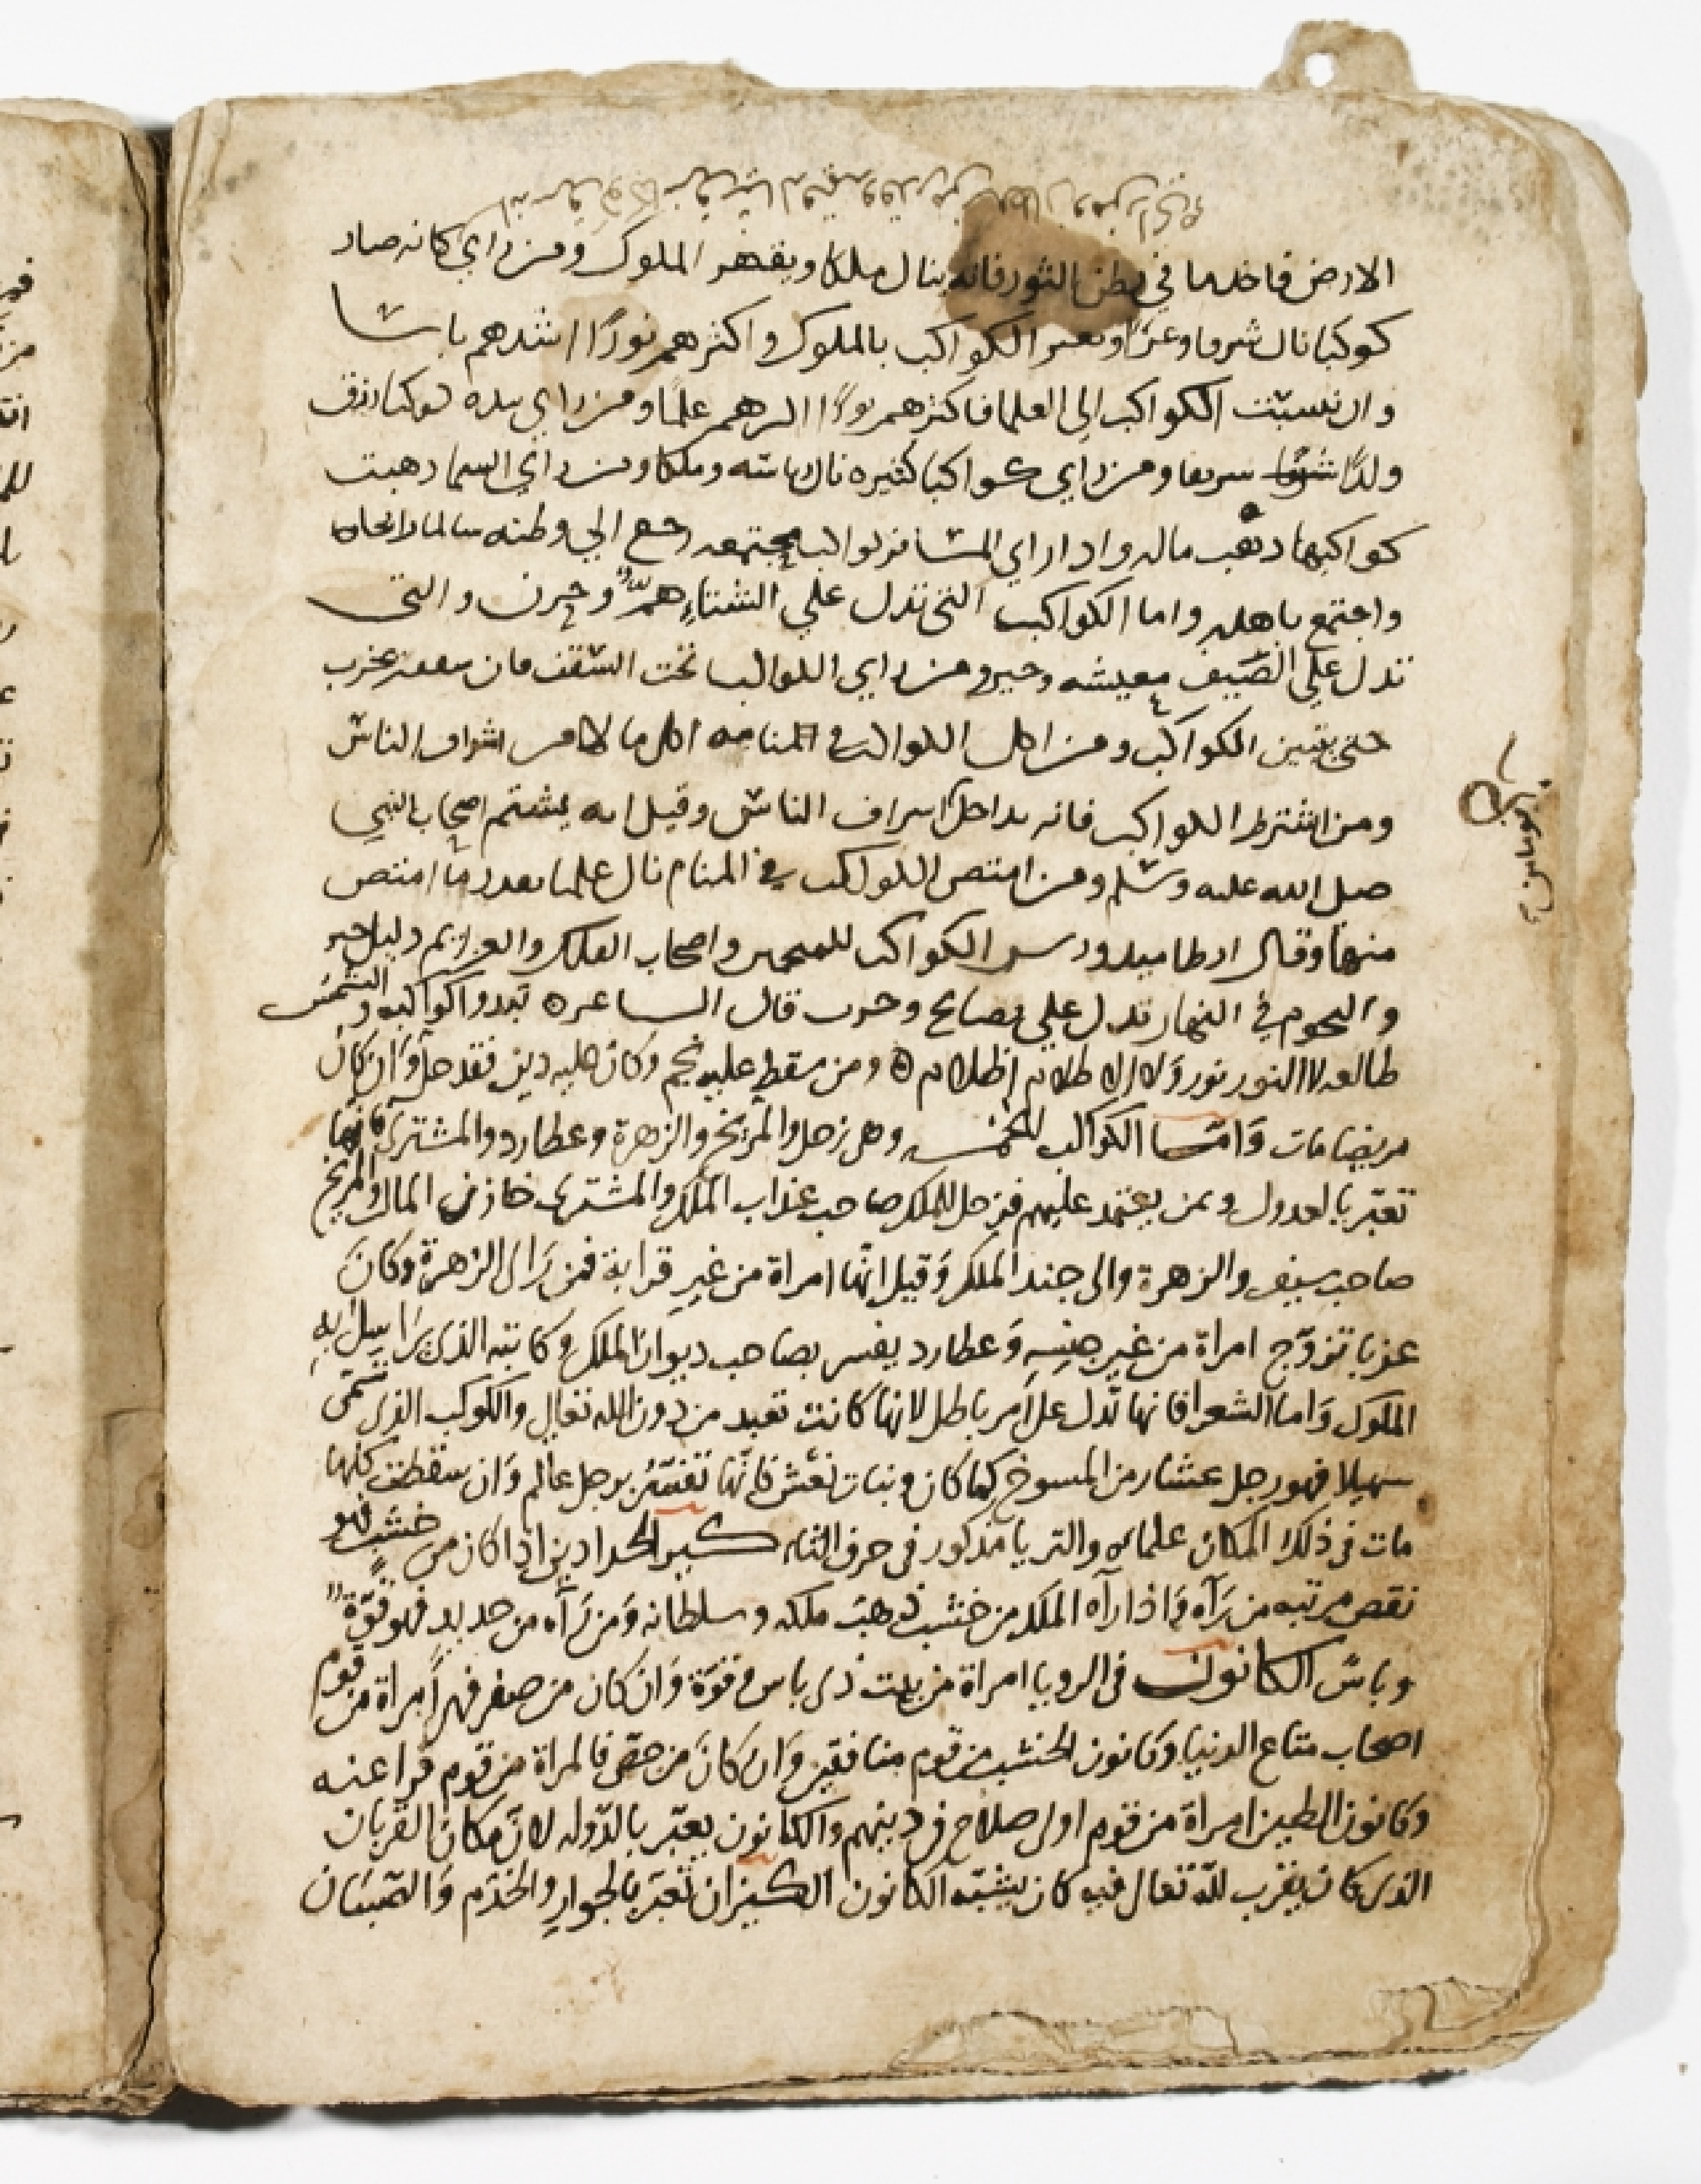 الارض فاخدها في بطن الثور فانه ينال ملكا ويقهر الملوك ومن راي كانه صار
كوكبا نال شرفا وعزا وتعبر الكواكب بالملوك واكثرهم نورًا اشدهم باسا
وان نسبت الكواكب الي العلما فاكثرهم نورًا اكثرهم علمًا ومن راي بيده كوكبا رزق
ولدًا سريعا ومن راي كواكبا كثيره نال ملكا ومن راي السما دهبت
كواكبها دهب ماله وادا راي المسافر كواكب مجتمعه رجع الي وطنه سالما
واجتمع باهله واما الكواكب التي تدل علي الشتاء همّ وحزن والتي
تدل علي الصَّيف معيشه وخير ومن راي الكواكب تحت السقف فان سقفه يخرب
حتي تتبين الكواكب ومن اكل الكواكب في المنام اكل مالا من اشراف الناس
ومن اشترط الكواكب فانه يداخل اشراف الناس وقيل انه يشتم اصحاب النبي
صلي الله عليه وسلم ومن امتص الكواكب في المنام نال علما بقدر ما امتص
منها وقال ارطاميدورس الكواكب للمنجمين واصحاب الفلك والعزايم دليل خير
والنجوم في النهار تدل علي فضايح وحرب قال الشاعر ه تبدوا كواكبه والشمس
طالعه لا النور نور وَلا الاظلام اظلام ه ومن سقط عليه نجم وكان عليه دين فقد حل وان كان
مريضا مات وَامّا الكواكب الخمسه وهي زحل والمريخ والزهرة وعطارد والمشتري فانها
تعبّر بالعدول وبمن يعتمد عليهم فزحل للملك صاحب عذاب الملك والمشتري خازن المال والمريخ
صاحب سيف والزهرة والي جند الملك وَقيل انّها امراة من غير قرابة فمن رَاى الزهرة وكانَ
عزبا تزوّج امراة من غير جنسِهِ وَعطارد يفسر بصاحب ديوان الملك وكاتبه الذي يرَاسِل به
الملوك وَاما الشعرا فانها تدل علي امر باطل لانها كانت تعبد من دون الله تعالى والكوكب الذي تسمّى
سهيلا فهو رجل عشار من المسوخ كما كان وبنات نعش فانّها تفسّر برجل عالم وَان سقطت كلها
مات في ذلك المكان علماءه والثريا مذكور في حرف الثاء كير الحدادين اذا كان من خشبٍ فهو
نقص مرتبه من رَآه وَاذا رآه الملك من خشب ذهب ملكه وسلطانه وَمن رَآه من حديد فهو قوّة
وباسٌ الكانون في الرويا امراة من بيت ذي باس وقوّة وَان كان من صفر فهي امراة من قوم
اصحاب متاع الدنيا وكانون الخشب من قوم منافقين وَان كانَ من جصّ فالمراة من قوم فراعنه
وكانون الطين امراة من قوم اولى صلاح في دينهم والكانون يعبّر بالدّوله لانّ مكان القربان
الذي كان يقرب للّه تعالى فيه كان يشبّه الكانون الكيزان تعبّر بالجوار والخدم وَالصّبيَان